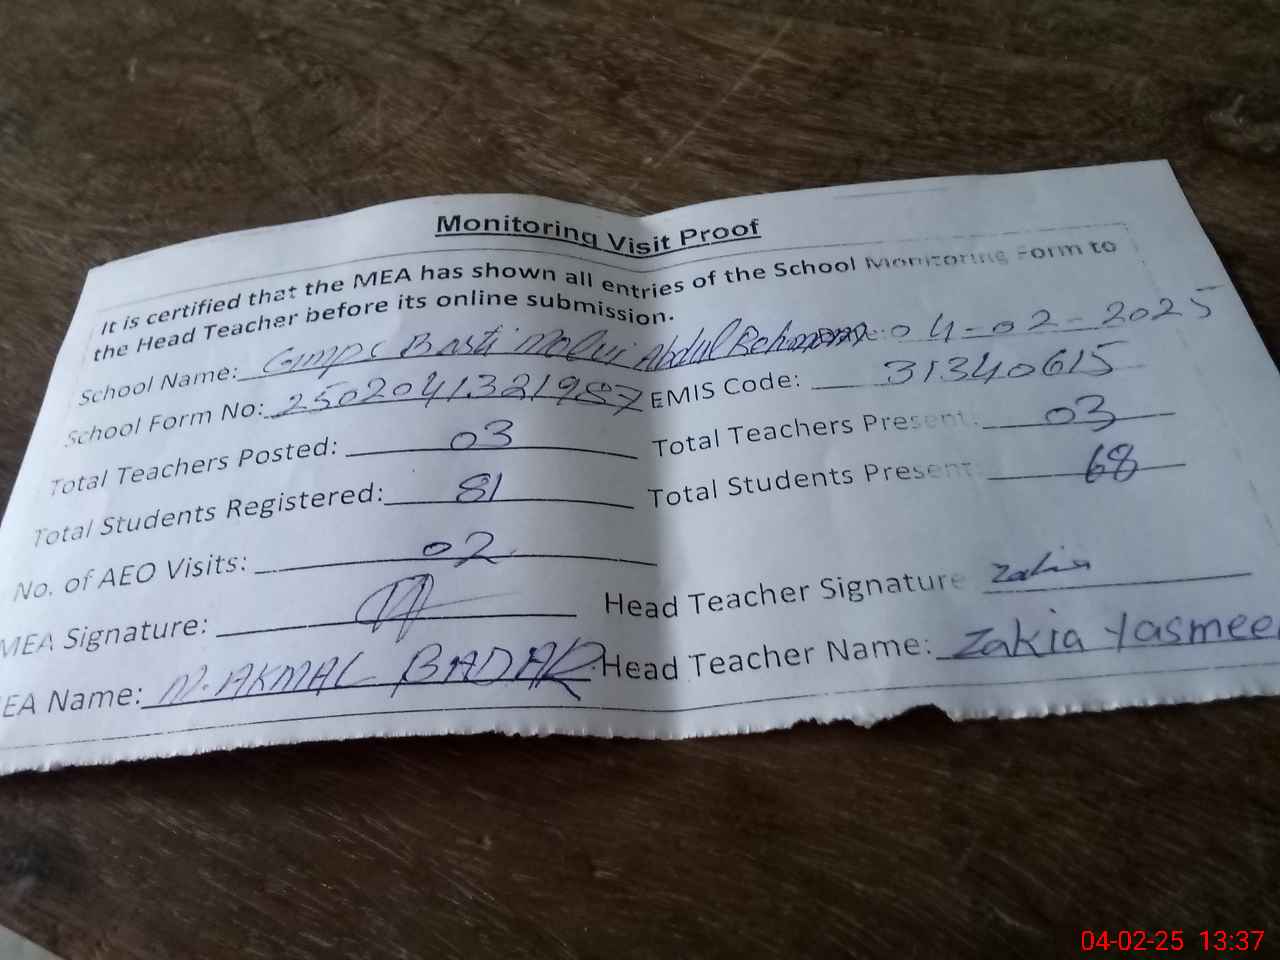 Monitoring Visit Proof
It is certified that the MEA has shown all entries of the School Monitoring Form to
the Head Teacher before its online submission.
School Name: GMPS Basti Molvi Abdul Rehman 04-02-2025
School Form No: 2502041321987 EMIS Code: 31340615
Total Teachers Posted: 03 Total Teachers Present: 03
Total Students Registered: 81 Total Students Present: 68
No. of AEO Visits: 02
MEA Signature: Head Teacher Signature Zakia
EA Name: M. AKMAL BADAR Head Teacher Name: Zakia Yasmee
04-02-25 13:37